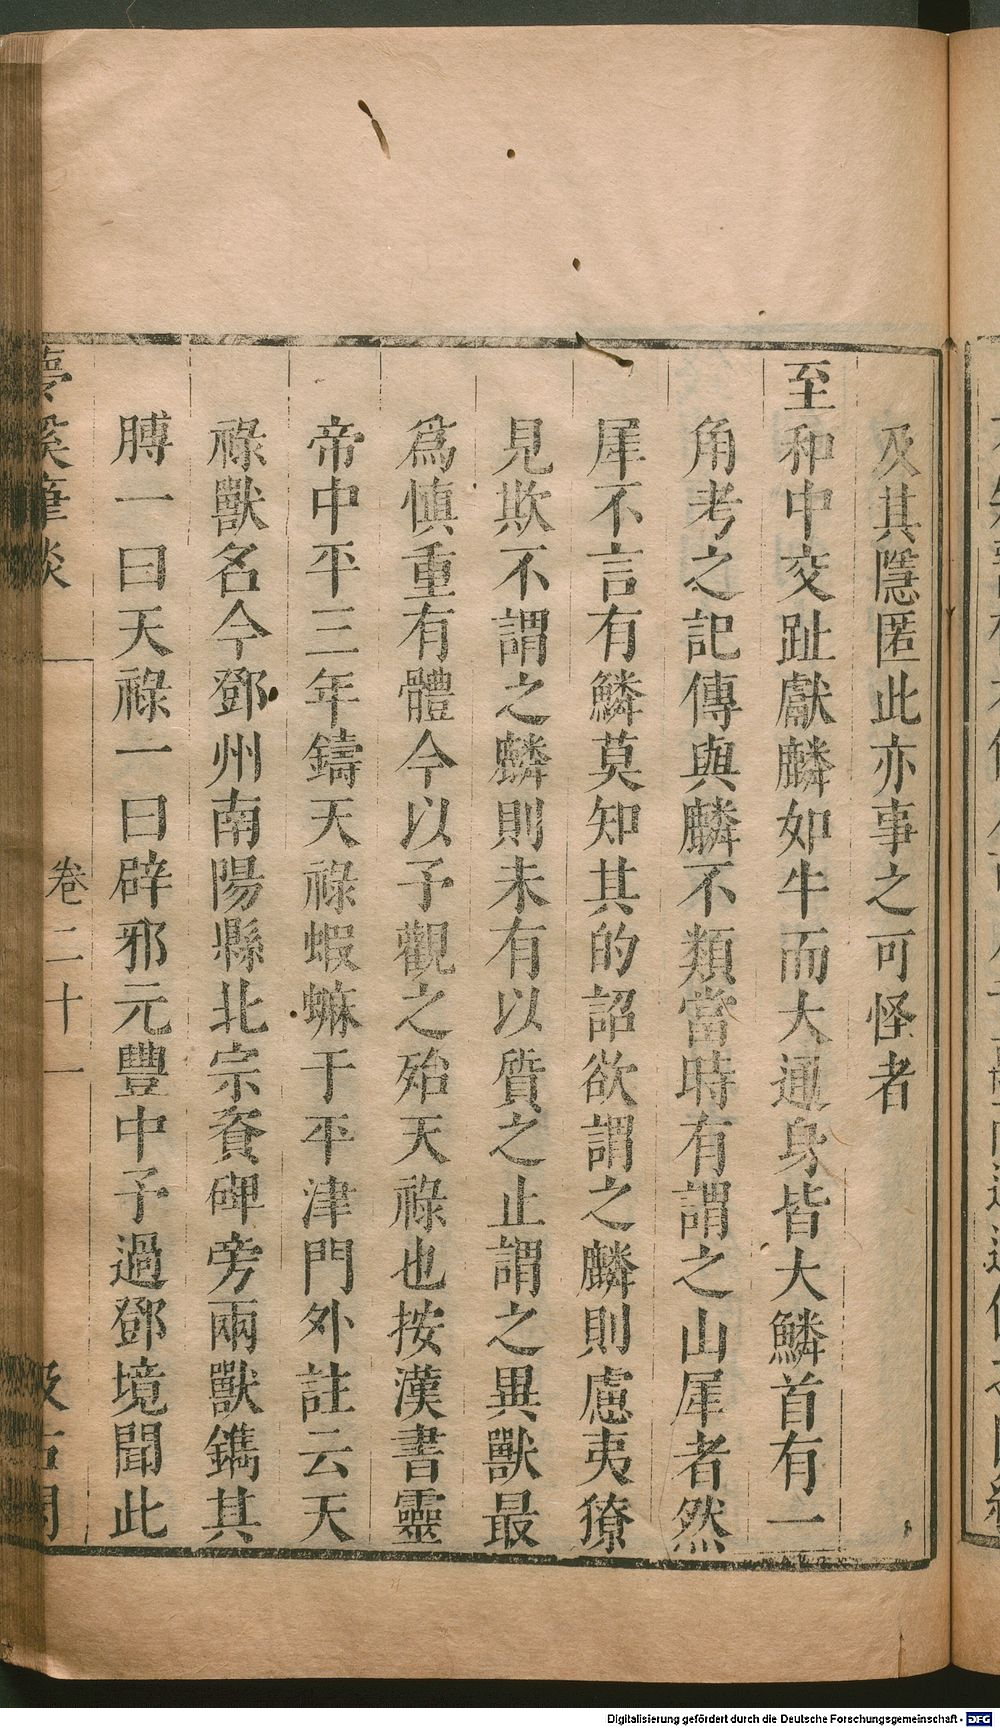 及其隱匿此亦事之可怪者
至和中交趾獻麟如牛而大通身皆大鱗首有一
角考之記傳與麟不類當時有謂之山犀者然
犀不言有鱗莫知其的詔欲謂之麟則慮夷獠
見欺不謂之麟則未有以質之止謂之異獸最
爲慎重有體今以予觀之殆天祿也按漢書靈
帝中平三年鑄天祿蝦蟆于平津門外註云天
祿獸名今鄧州南陽縣北宗資碑旁兩獸鐫其
膊一曰天祿一曰辟邪元豐中予過鄧境聞此
夢溪筆談
卷二十一
Digitalisierung gefördert durch die Deutsche Forschungsgemeinschaft - DFG